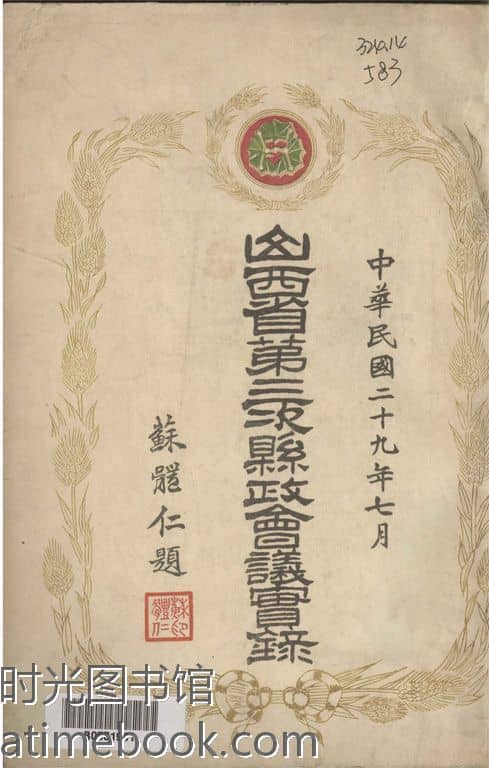 324.14
583
中華民國二十九年七月
山西省第三次縣政會議實錄
蘇體仁題
蘇體仁印
时光图书馆
atimebook.com